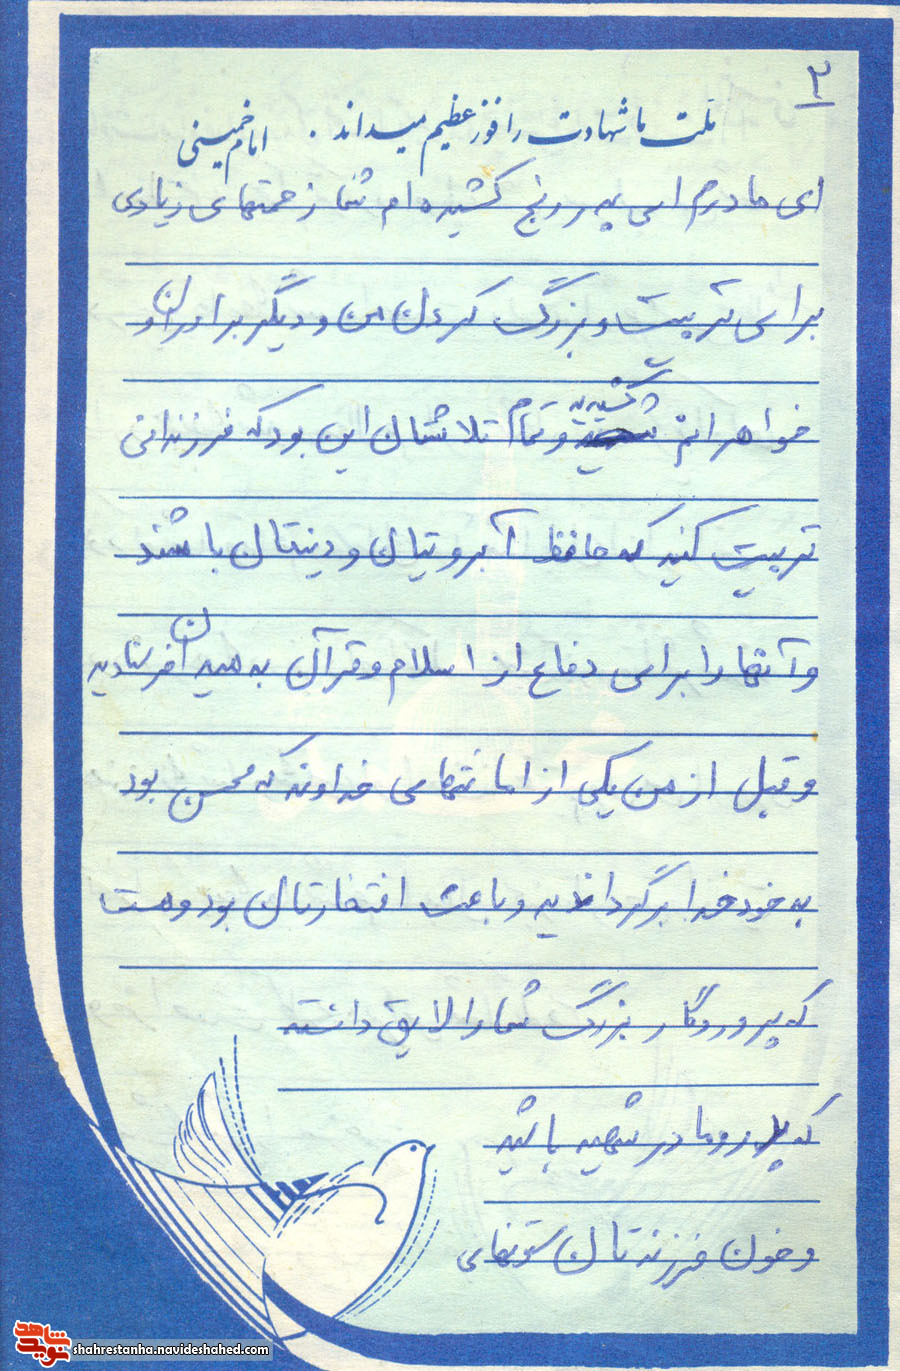 ۲
ملت ما شهادت را فوز عظیم میداند . امام خمینی
ای مادرم ای پدر رنج کشیده ام شما زحمتهای زیادی
برای تربیت و بزرگ کردن من و دیگر برادران و
خواهرانم کشیدید و تمام تلاشتان این بود که فرزندانی
تربیت کنید که حافظ آبرویتان و دینتان باشند
و آنها را برای دفاع از اسلام و قرآن به میدان فرستادید
و قبل از من یکی از امانتهای خداوند که محسن بود
به خود خدا برگرداندید و باعث افتخارتان بود و هست
که پروردگار بزرگ شما را لایق دانسته
که پدر و مادر شهید باشید
و خون فرزندتان ستونهای
نوید شاهد
shahrestanha.navideshahed.com